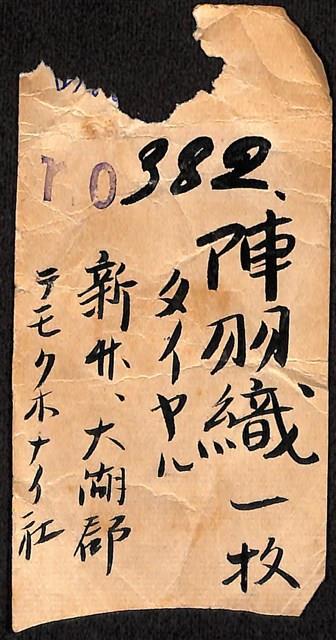 10
382.
陣羽織 一枚
タイヤル
新竹、大湖郡
テモクホナイ社